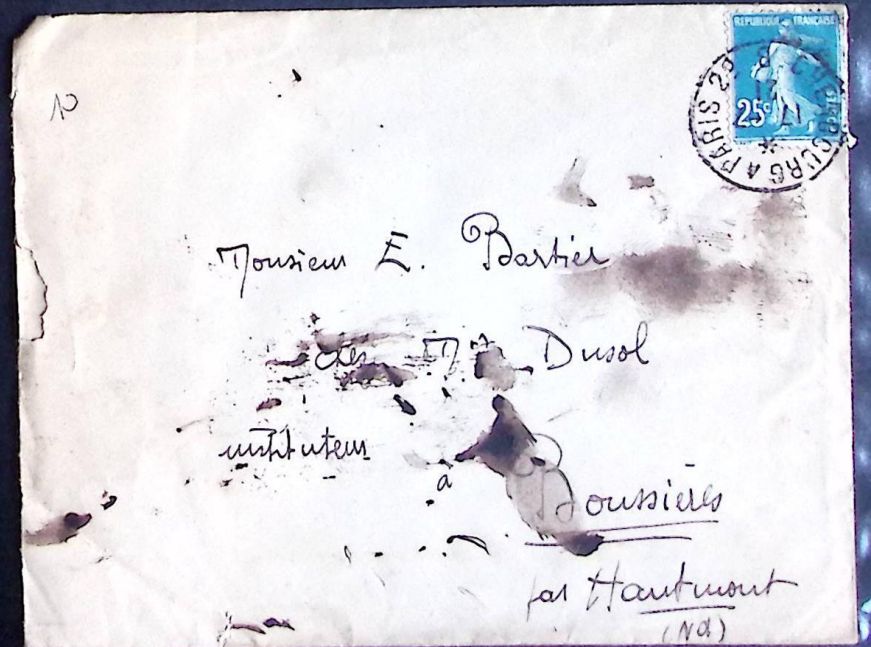 REPUBLIQUE FRANÇAISE
25c
CHERBOURG A PARIS 2°
10
Monsieur E. Bartier
chez Mr Dusol
instituteur
à
Boussières
par Hautmont
(Nd)